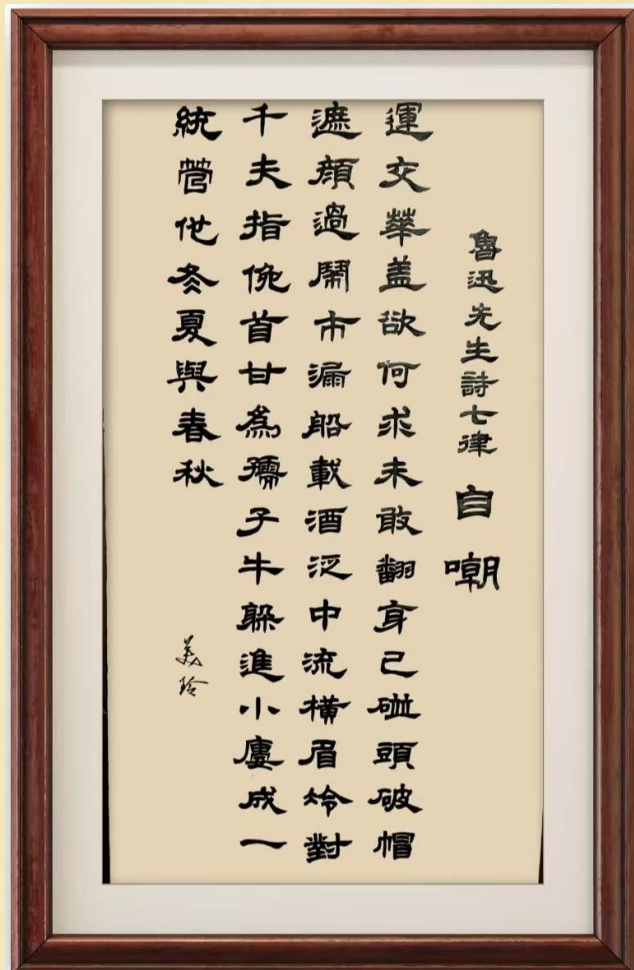 魯迅先生詩七律 自嘲
運交華盖欲何求未敢翻身已碰頭破帽
遮顏過鬧市漏船載酒泛中流橫眉冷對
千夫指俛首甘為孺子牛躲進小廔成一
統管他冬夏與春秋
美玲